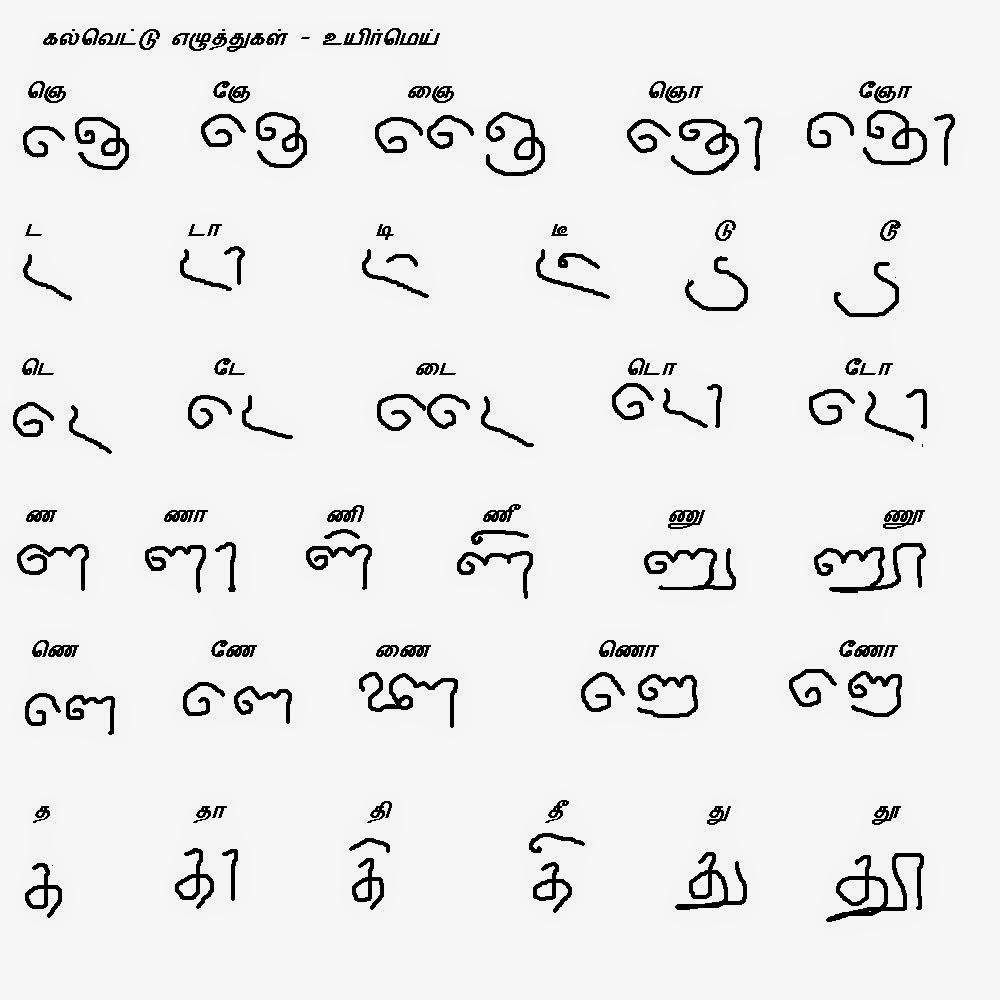 கல்வெட்டு எழுத்துகள் - உயிர்மெய்
ஞெ ஞே ஞை ஞொ ஞோ
ஞெ ஞே ஞை ஞொ ஞோ
ட டா டி டீ டு டூ
ட டா டி டீ டு டூ
டெ டே டை டொ டோ
டெ டே டை டொ டோ
ண ணா ணி ணீ ணு ணூ
ண ணா ணி ணீ ணு ணூ
ணெ ணே ணை ணொ ணோ
ணெ ணே ணை ணொ ணோ
த தா தி தீ து தூ
த தா தி தீ து தூ